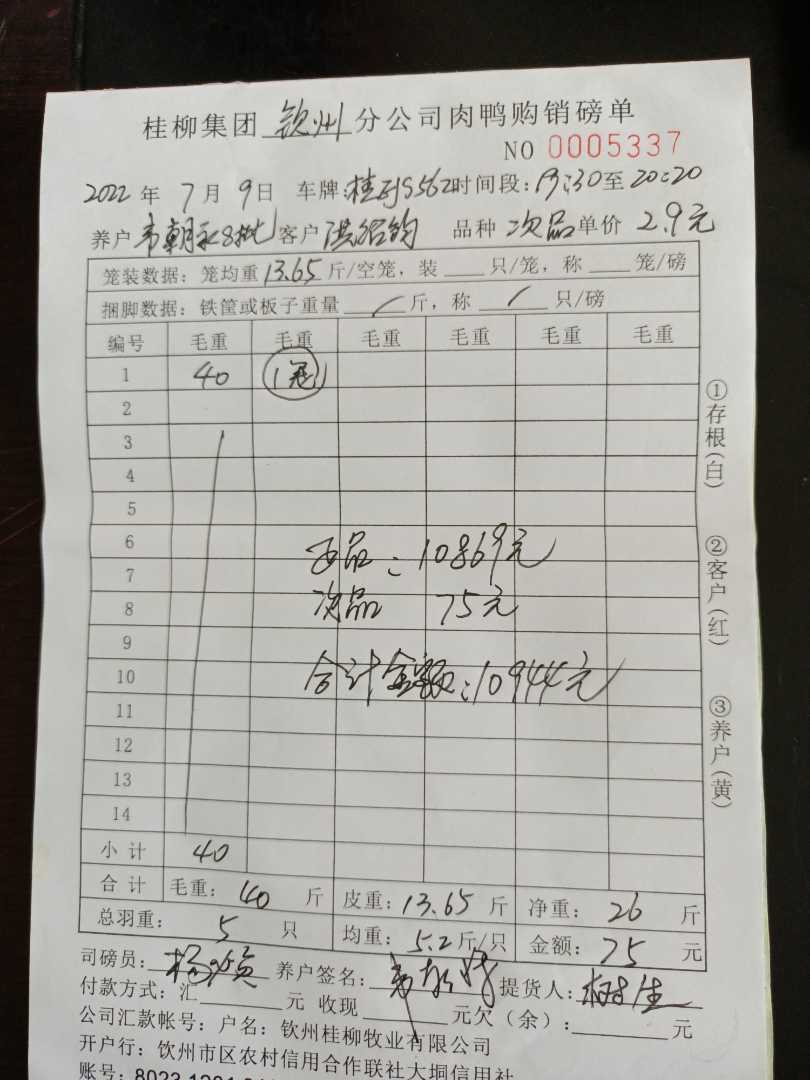 桂柳集团 钦州 分公司肉鸭购销磅单
NO 0005337
2022 年 7 月 9 日 车牌: 时间段: 19:30 至 20:20
养户 韦朝 8批 客户 洪绍钧 品种 次品 单价 2.9元
笼装数据: 笼均重 13.65 斤/空笼, 装 只/笼, 称 笼/磅
捆脚数据: 铁筐或板子重量 / 斤, 称 / 只/磅
编号 毛重 毛重 毛重 毛重 毛重 毛重
1 40 (1笼)
2
3
4
5
6
正品: 10869元
7
8
次品 75元
9
10
合计金额: 10944元
11
12
13
14
小计 40
合计 毛重: 40 斤 皮重: 13.65 斤 净重: 26 斤
总羽重: 5 只 均重: 5.2 斤/只 金额: 75 元
司磅员: 杨 养户签名: 韦 提货人: 树生
付款方式: 汇 元 收现 元欠(余): 元
公司汇款帐号: 户名: 钦州桂柳牧业有限公司
开户行: 钦州市区农村信用合作联社大垌信用社
账号: 8023 1201
①存根(白)
②客户(红)
③养户(黄)